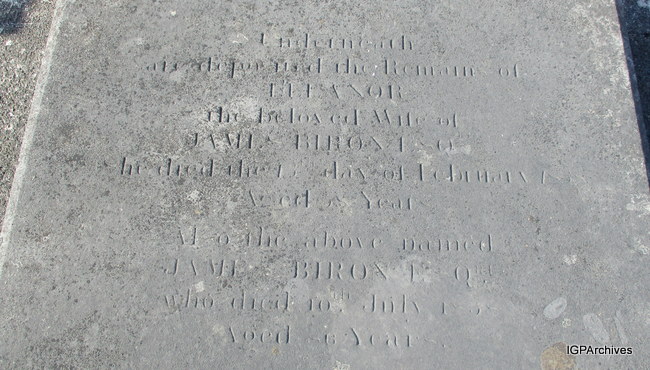 Underneath
are deposited the Remains of
ELEANOR
the beloved Wife of
JAMES BIRON ESQ
he died the day of February
Aged Year
Also the above named
JAMES BIRON ESQ
who died 10th July
Aged Years
IGPArchives